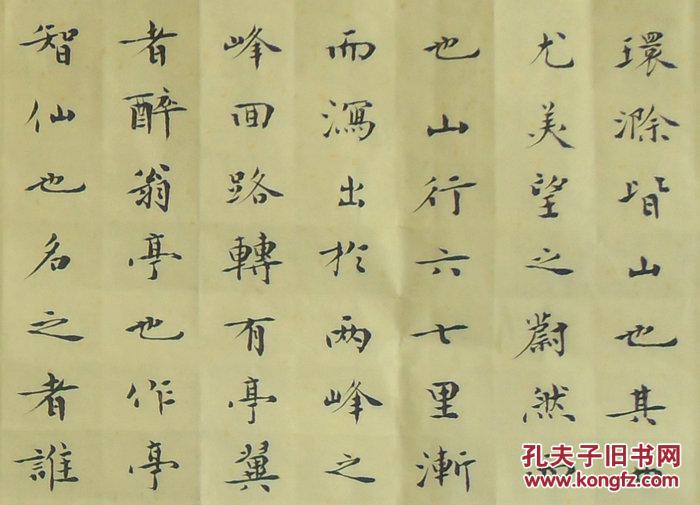 環滁皆山也其
尤美望之蔚然
也山行六七里漸
而瀉出於两峰之
峰回路轉有亭翼
者醉翁亭也作亭
智仙也名之者誰
孔夫子旧书网
www.kongfz.com